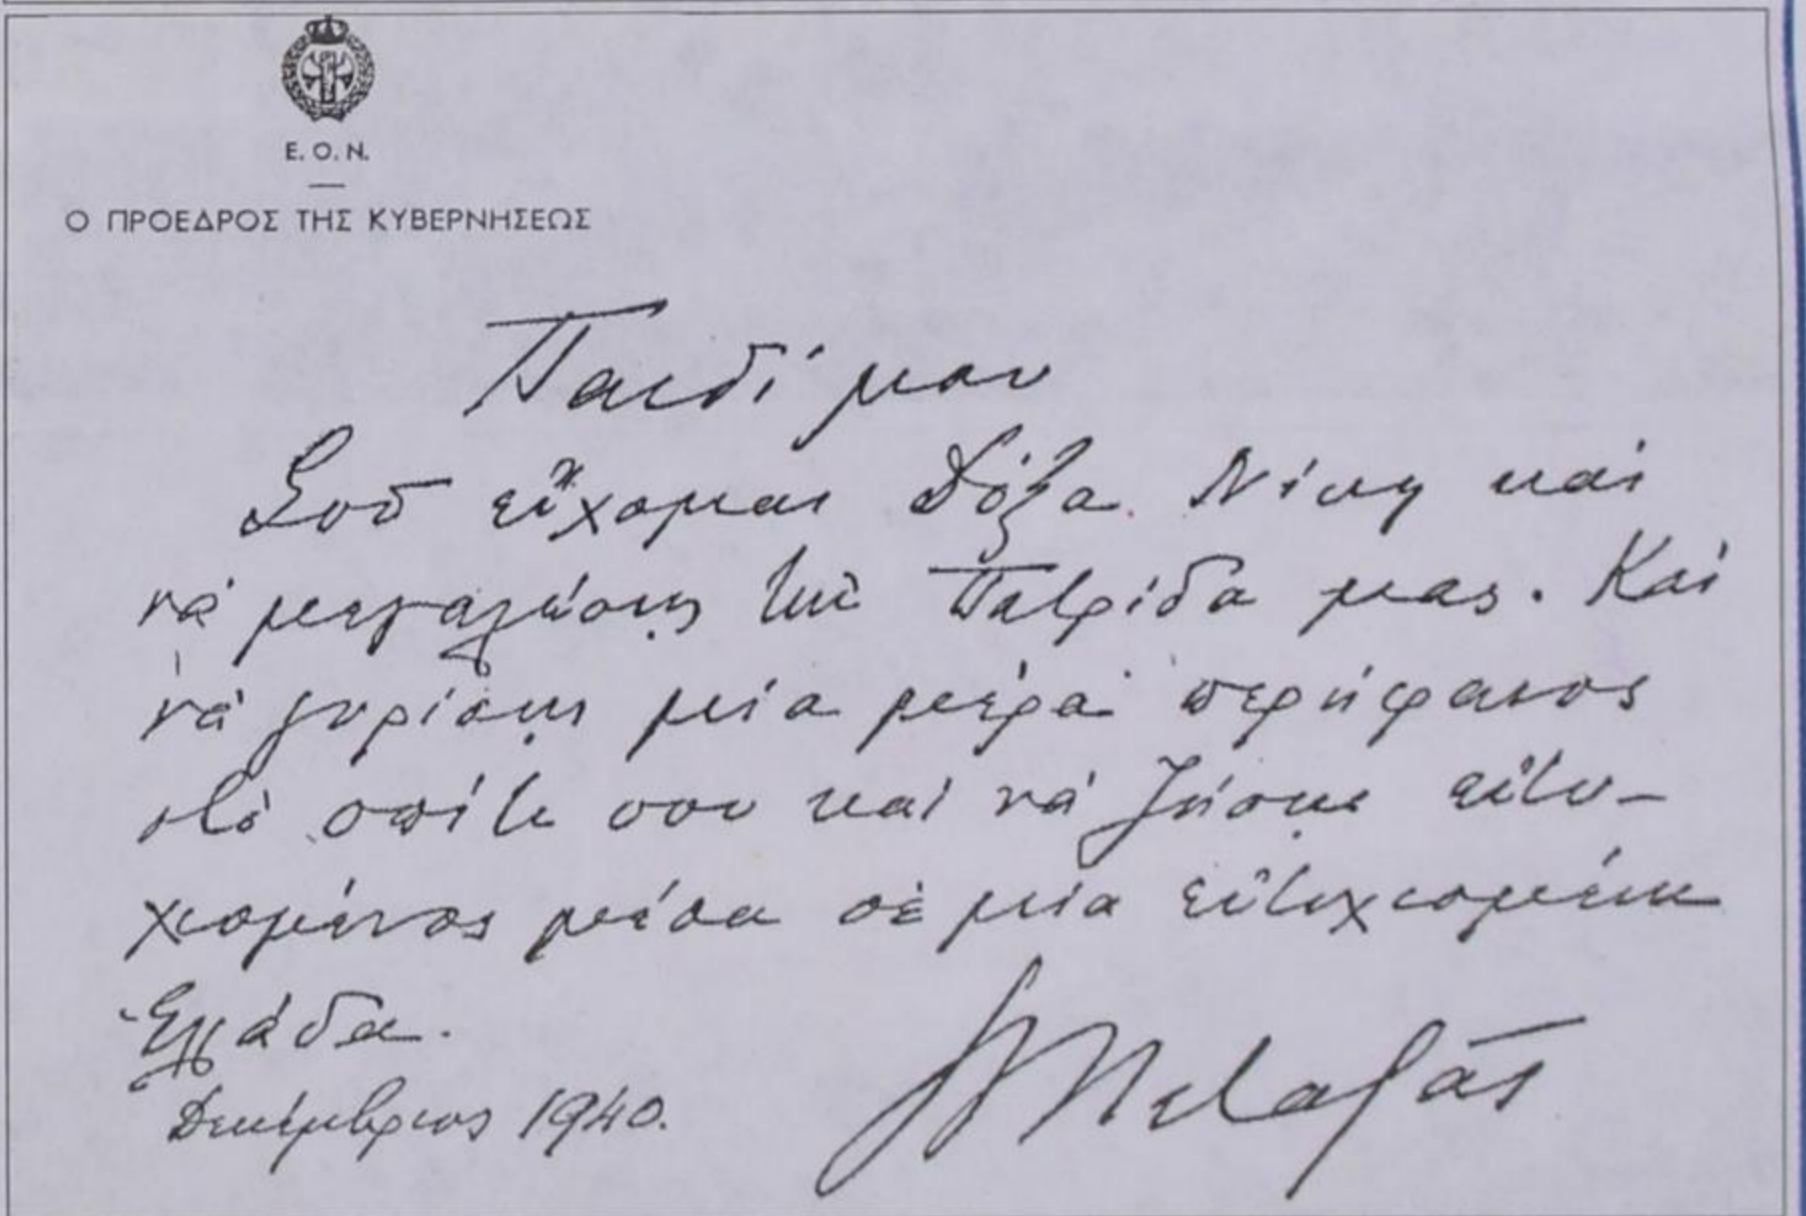 Ε. Ο. Ν.
Ο ΠΡΟΕΔΡΟΣ ΤΗΣ ΚΥΒΕΡΝΗΣΕΩΣ
Παιδί μου
Σοῦ εὔχομαι Δόξα Νίκη καὶ
νά μεγαλώσῃς τὴ Πατρίδα μας. Καί
νά γυρίσῃς μία μέρα περήφανος
στό σπίτι σου καί νά ζήσῃς εὐτυ-
χισμένος μέσα σέ μία εὐτυχισμένη
Ἑλλάδα.
Δεκέμβριος 1940.
Μεταξᾶς